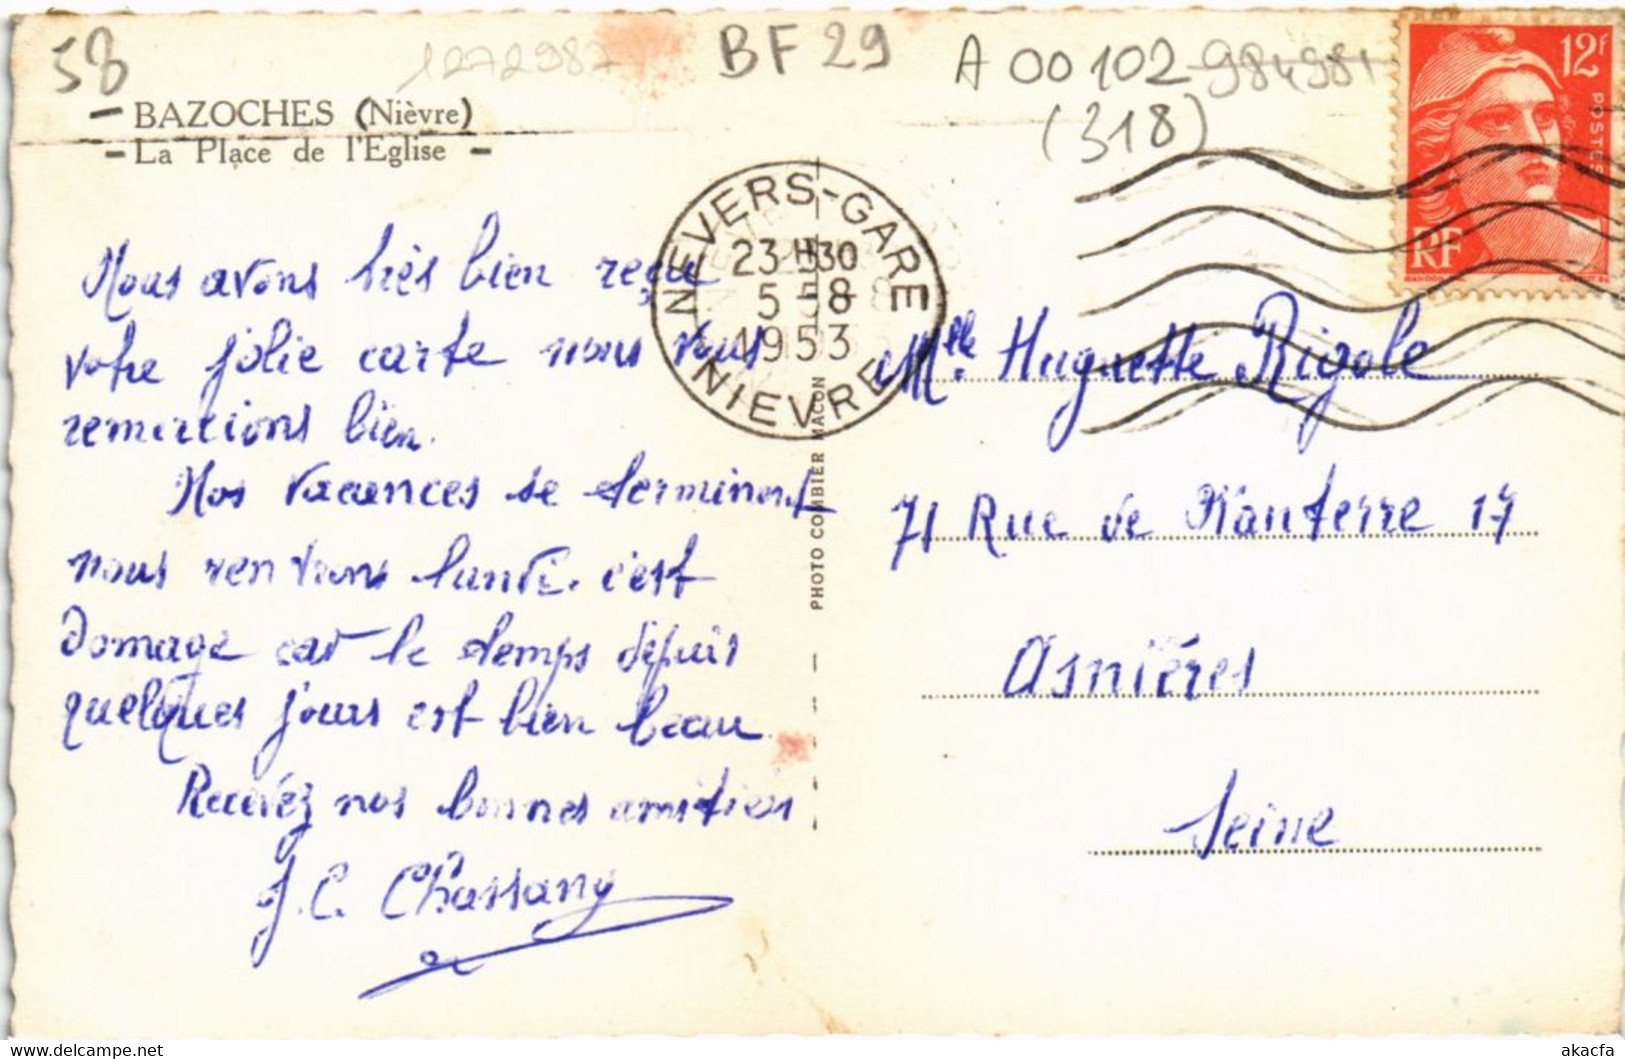 58
1272987
BF 29
A 00102 984981
(318)
- BAZOCHES (Nièvre)
- La Place de l'Eglise -
12F
POSTES
RF
NEVERS-GARE
23 H30
5 -8
1953
NIEVRE
Nous avons très bien reçu
votre jolie carte nous vous
remercions bien.
Nos vacances se terminent
nous rentrons lundi. c'est
Domage car le temps depuis
quelques jours est bien beau
Recevez nos bonnes amitiés
J.C. Chassang
PHOTO COMBIER MACON
Mlle Huguette Rigole
71 Rue de Nanterre 17
Asnières
Seine
akacfa